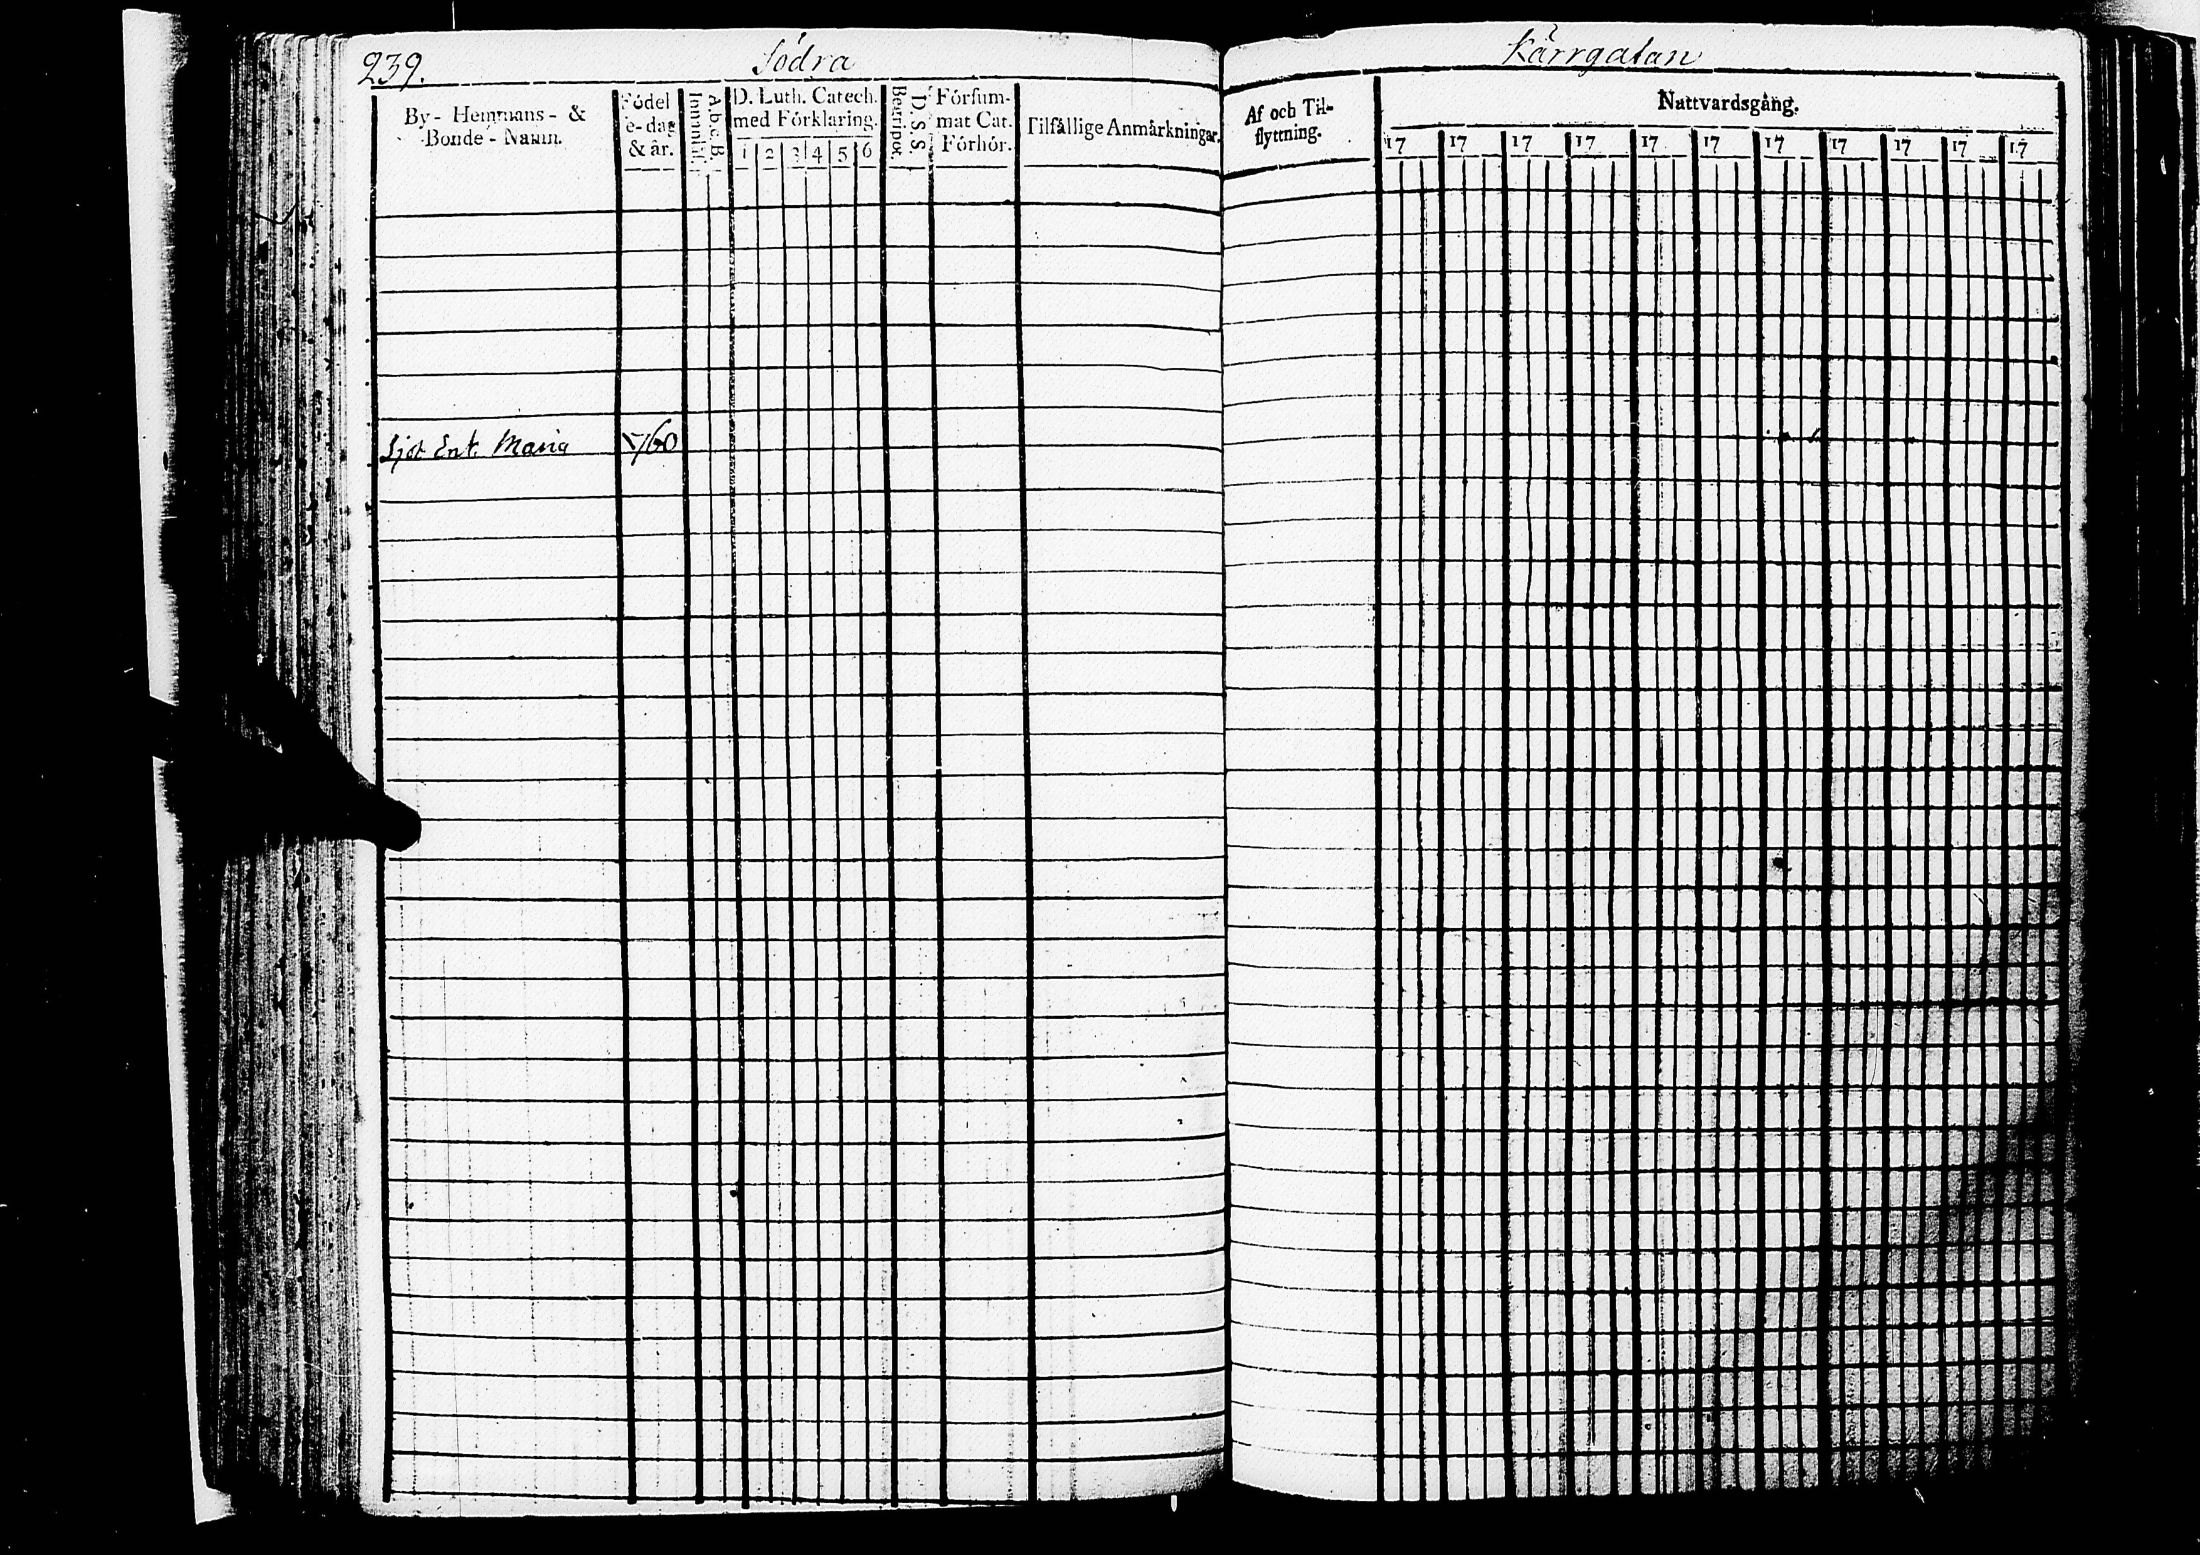 239.
Södra
Kärrgatan
By- Hemmans- &
Bonde- Namn.
Födel
e-dag
& år.
A.b.c.B.
Innanläs.
D. Luth. Catech.
med Förklaring.
1 2 3 4 5 6
D. S. S.
Begripet.
Försum-
mat Cat.
Förhör.
Tilfällige Anmärkningar.
Af och Til-
flyttning.
Nattvardsgång.
17 17 17 17 17 17 17 17 17 17 17
Enk. Maria 1760